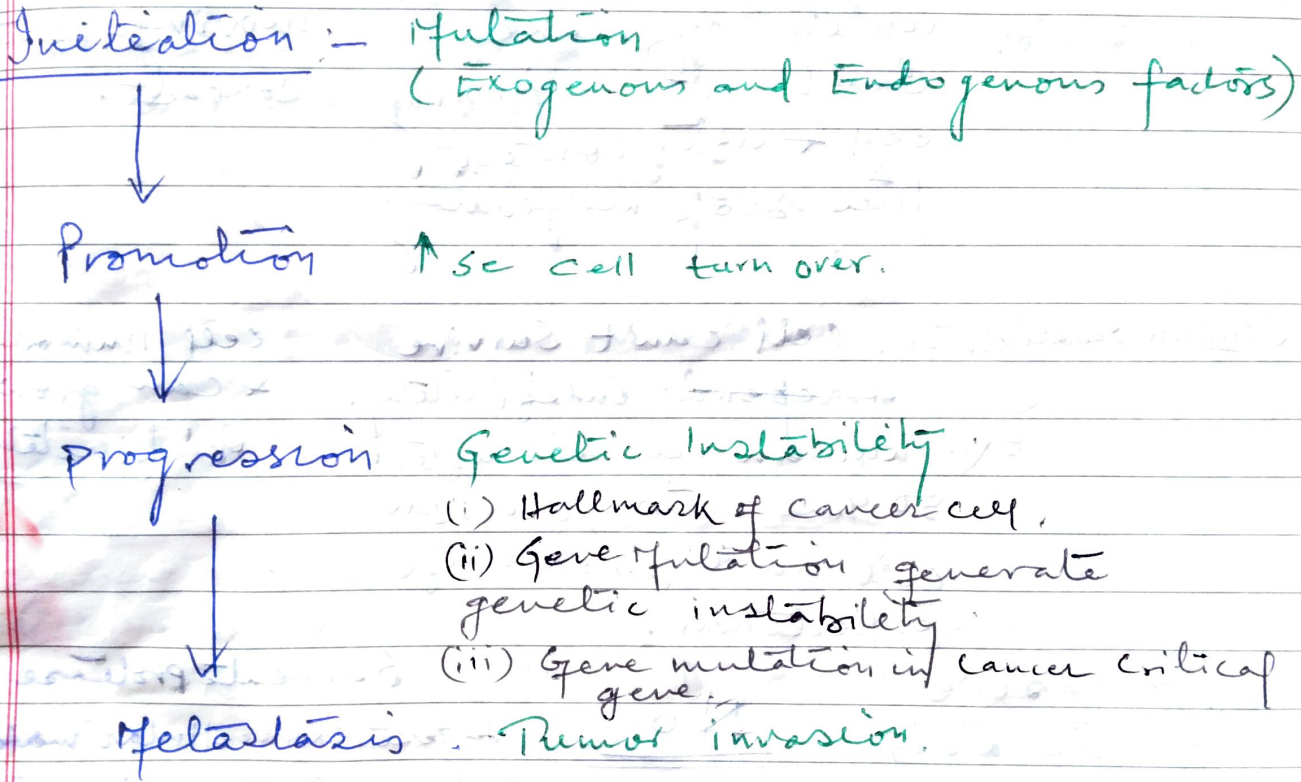 Initiation :- Mutation
(Exogenous and Endogenous factors)
Promotion ↑se cell turn over.
Progression Genetic Instability.
(i) Hallmark of cancer cell.
(ii) Gene Mutation generate
genetic instability
(iii) Gene mutation in cancer critical
gene.
Metastasis. Tumor invasion.